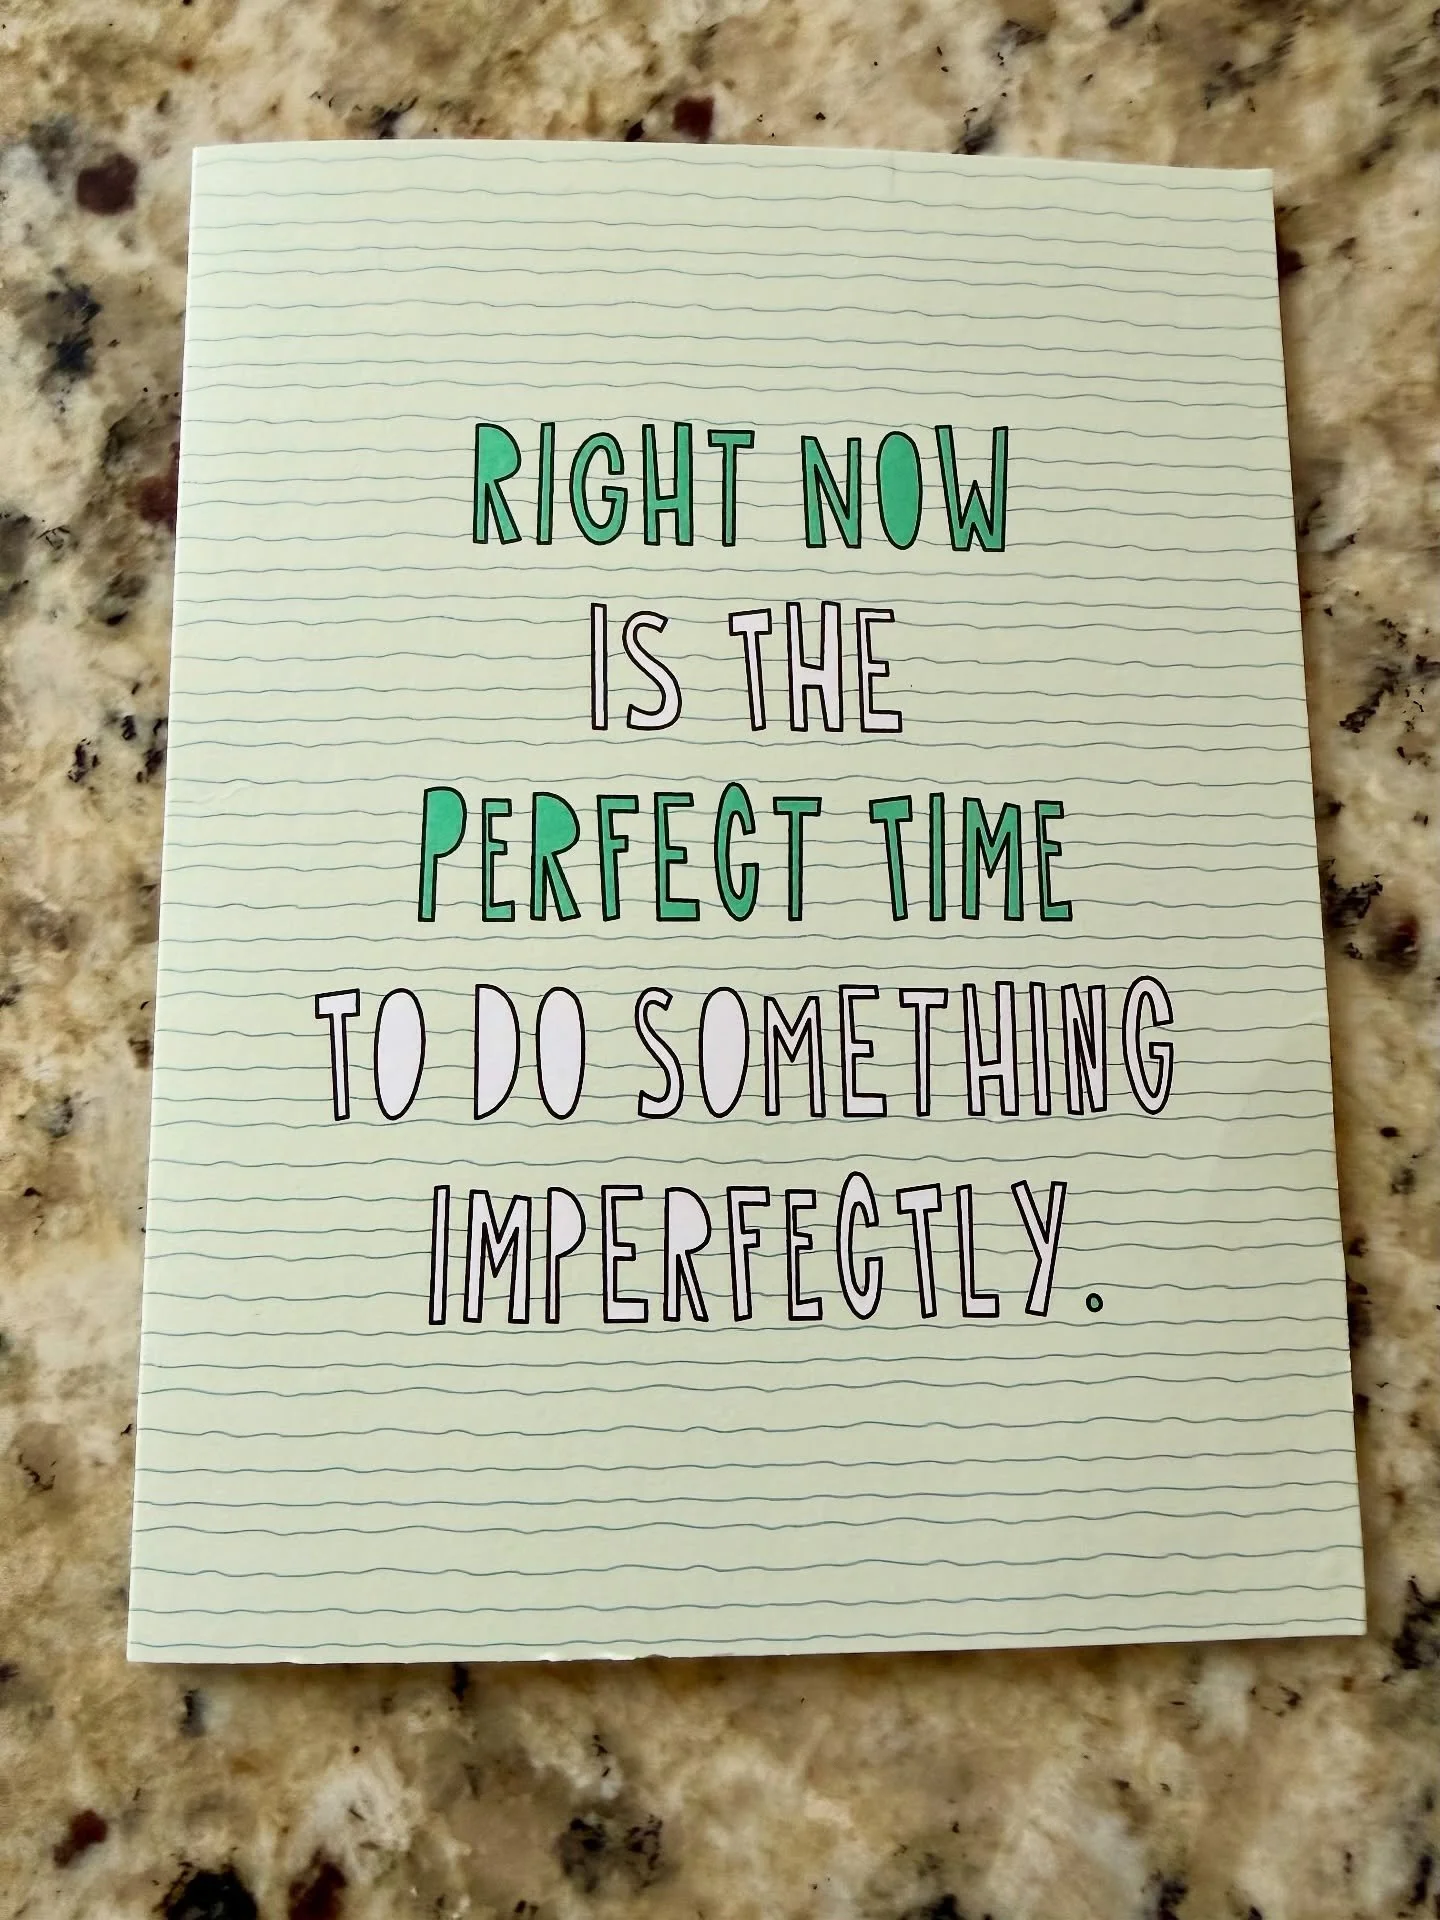 RIGHT NOW
IS THE
PERFECT TIME
TO DO SOMETHING
IMPERFECTLY.